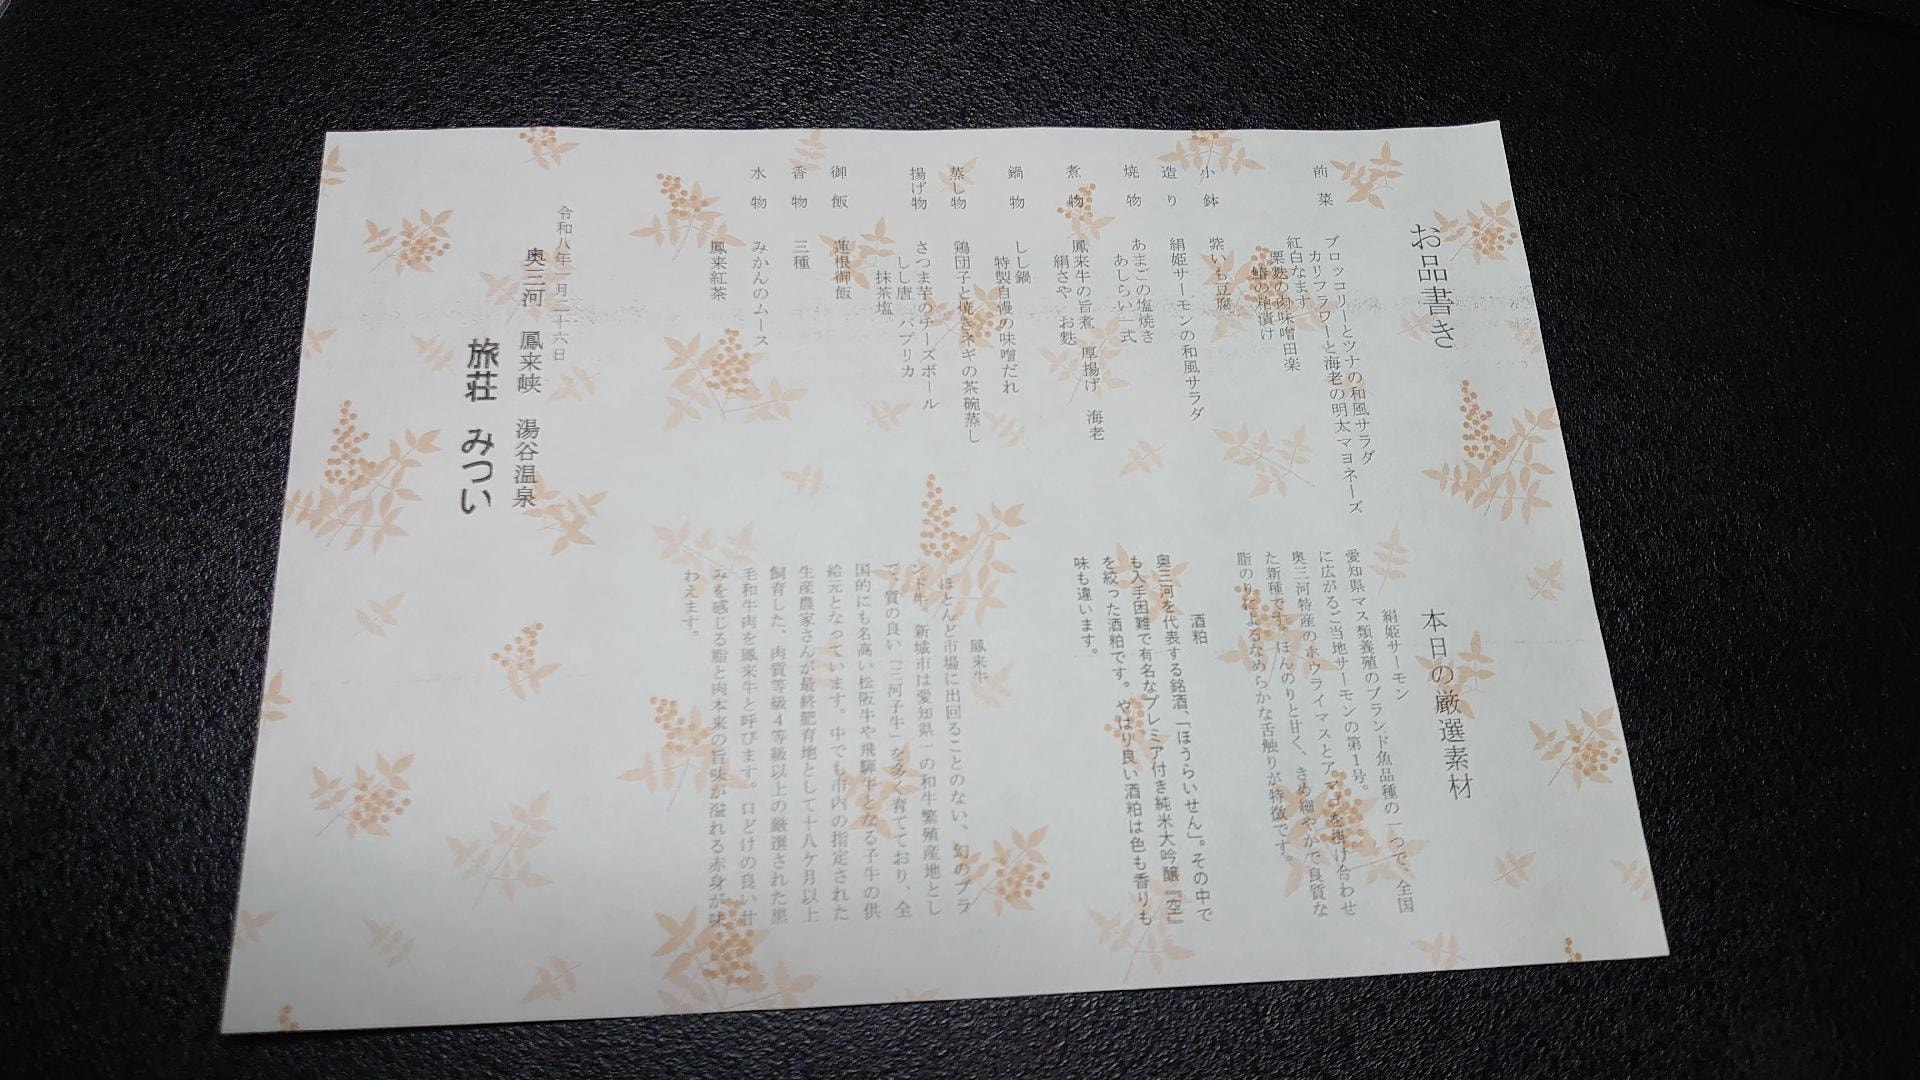 お品書き
前菜 ブロッコリーとツナの和風サラダ
カリフラワーと海老の明太マヨネーズ
紅白なます
栗麩の肉味噌田楽
鰆の粕漬け
小鉢 紫いも豆腐
造り 絹姫サーモンの和風サラダ
焼物 あまごの塩焼き
あしらい一式
煮物 鳳来牛の旨煮 厚揚げ 海老
絹さや お麩
鍋物 しし鍋
特製自慢の味噌だれ
蒸し物 鶏団子と焼きネギの茶碗蒸し
揚げ物 さつま芋のチーズボール
しし唐 パプリカ
抹茶塩
御飯 蓮根御飯
香物 三種
水物 みかんのムース
鳳来紅茶
令和八年一月二十六日
奥三河 鳳来峡 湯谷温泉
旅荘 みつい
本日の厳選素材
絹姫サーモン
愛知県マス類養殖のブランド魚品種の一つで、全国
に広がるご当地サーモンの第1号。
奥三河特産のホウライマスとアマゴを掛け合わせ
た新種です。ほんのりと甘く、きめ細やかで良質な
脂のりによるなめらかな舌触りが特徴です。
酒粕
奥三河を代表する銘酒、「ほうらいせん」。その中で
も入手困難で有名なプレミア付き純米大吟醸『空』
を絞った酒粕です。やはり良い酒粕は色も香りも
味も違います。
鳳来牛
ほとんど市場に出回ることのない、幻のブラ
ンド牛。新城市は愛知県一の和牛繁殖産地とし
て、質の良い「三河子牛」を多く育てており、全
国的にも名高い松阪牛や飛騨牛となる子牛の供
給元となっています。中でも市内の指定された
生産農家さんが最終肥育地として十八ケ月以上
飼育した、肉質等級4等級以上の厳選された黒
毛和牛肉を鳳来牛と呼びます。口どけの良い甘
みを感じる脂と肉本来の旨味が溢れる赤身が味
わえます。